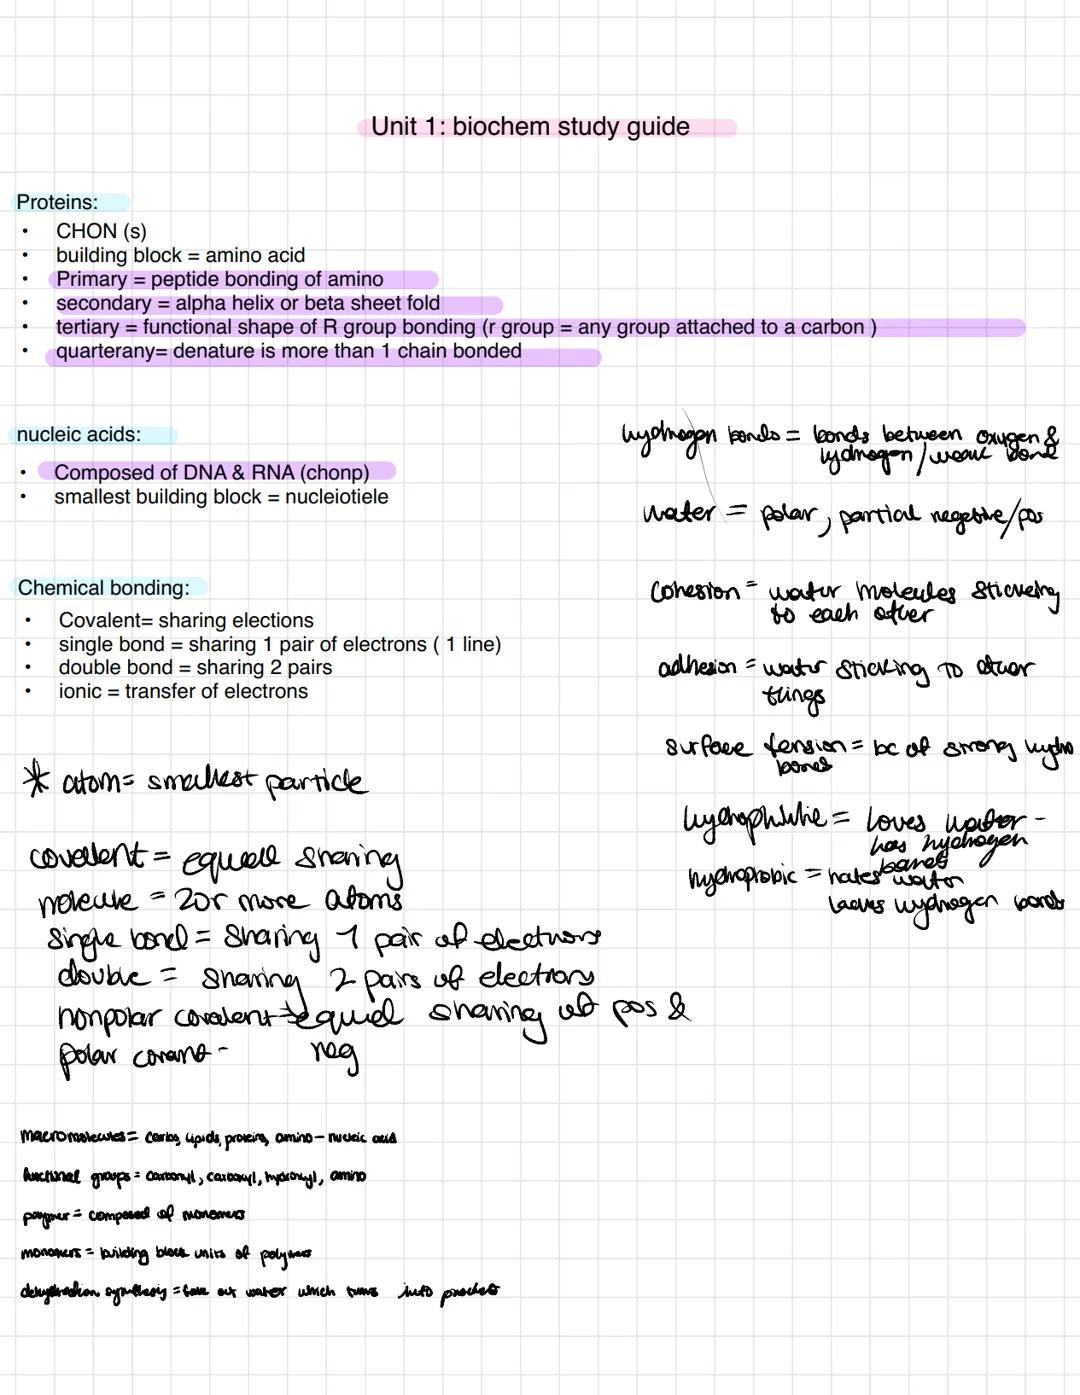 Unit 1: biochem study guide
Proteins:
• CHON (s)
• building block = amino acid
• Primary = peptide bonding of amino
• secondary = alpha helix or beta sheet fold
• tertiary = functional shape of R group bonding (r group = any group attached to a carbon )
• quarterany= denature is more than 1 chain bonded
nucleic acids:
• Composed of DNA & RNA (chonp)
• smallest building block = nucleiotiele
Chemical bonding:
• Covalent= sharing elections
• single bond = sharing 1 pair of electrons ( 1 line)
• double bond = sharing 2 pairs
• ionic = transfer of electrons
* atom= smallest particle
covalent = equall sharing
molecule = 2 or more atoms
Single bond = Sharing 1 pair of electrons
double = sharing 2 pairs of electrons
nonpolar covalent → equal sharing of pos &
neg
polar -
macromolecules = carbs, lipids, proteins, amino - nucleic acid
functional groups = carbonyl, carboxyl, hydroxyl, amino
polymer = composed of monomers
monomers = building block units of polymers
dehydration synthesis = take out water which turns into product
hydrogen bonds = bonds between oxygen &
hydrogen / weak bond
water = polar, partial negative/pos
Cohesion = water molecules sticking
to each other
adhesion = water sticking to other
things
surface tension = bc of strong hydro
bonds
hydrophilic = loves water -
has hydrogen
bonds
hydroprobic = hates water
lacks hydrogen bonds